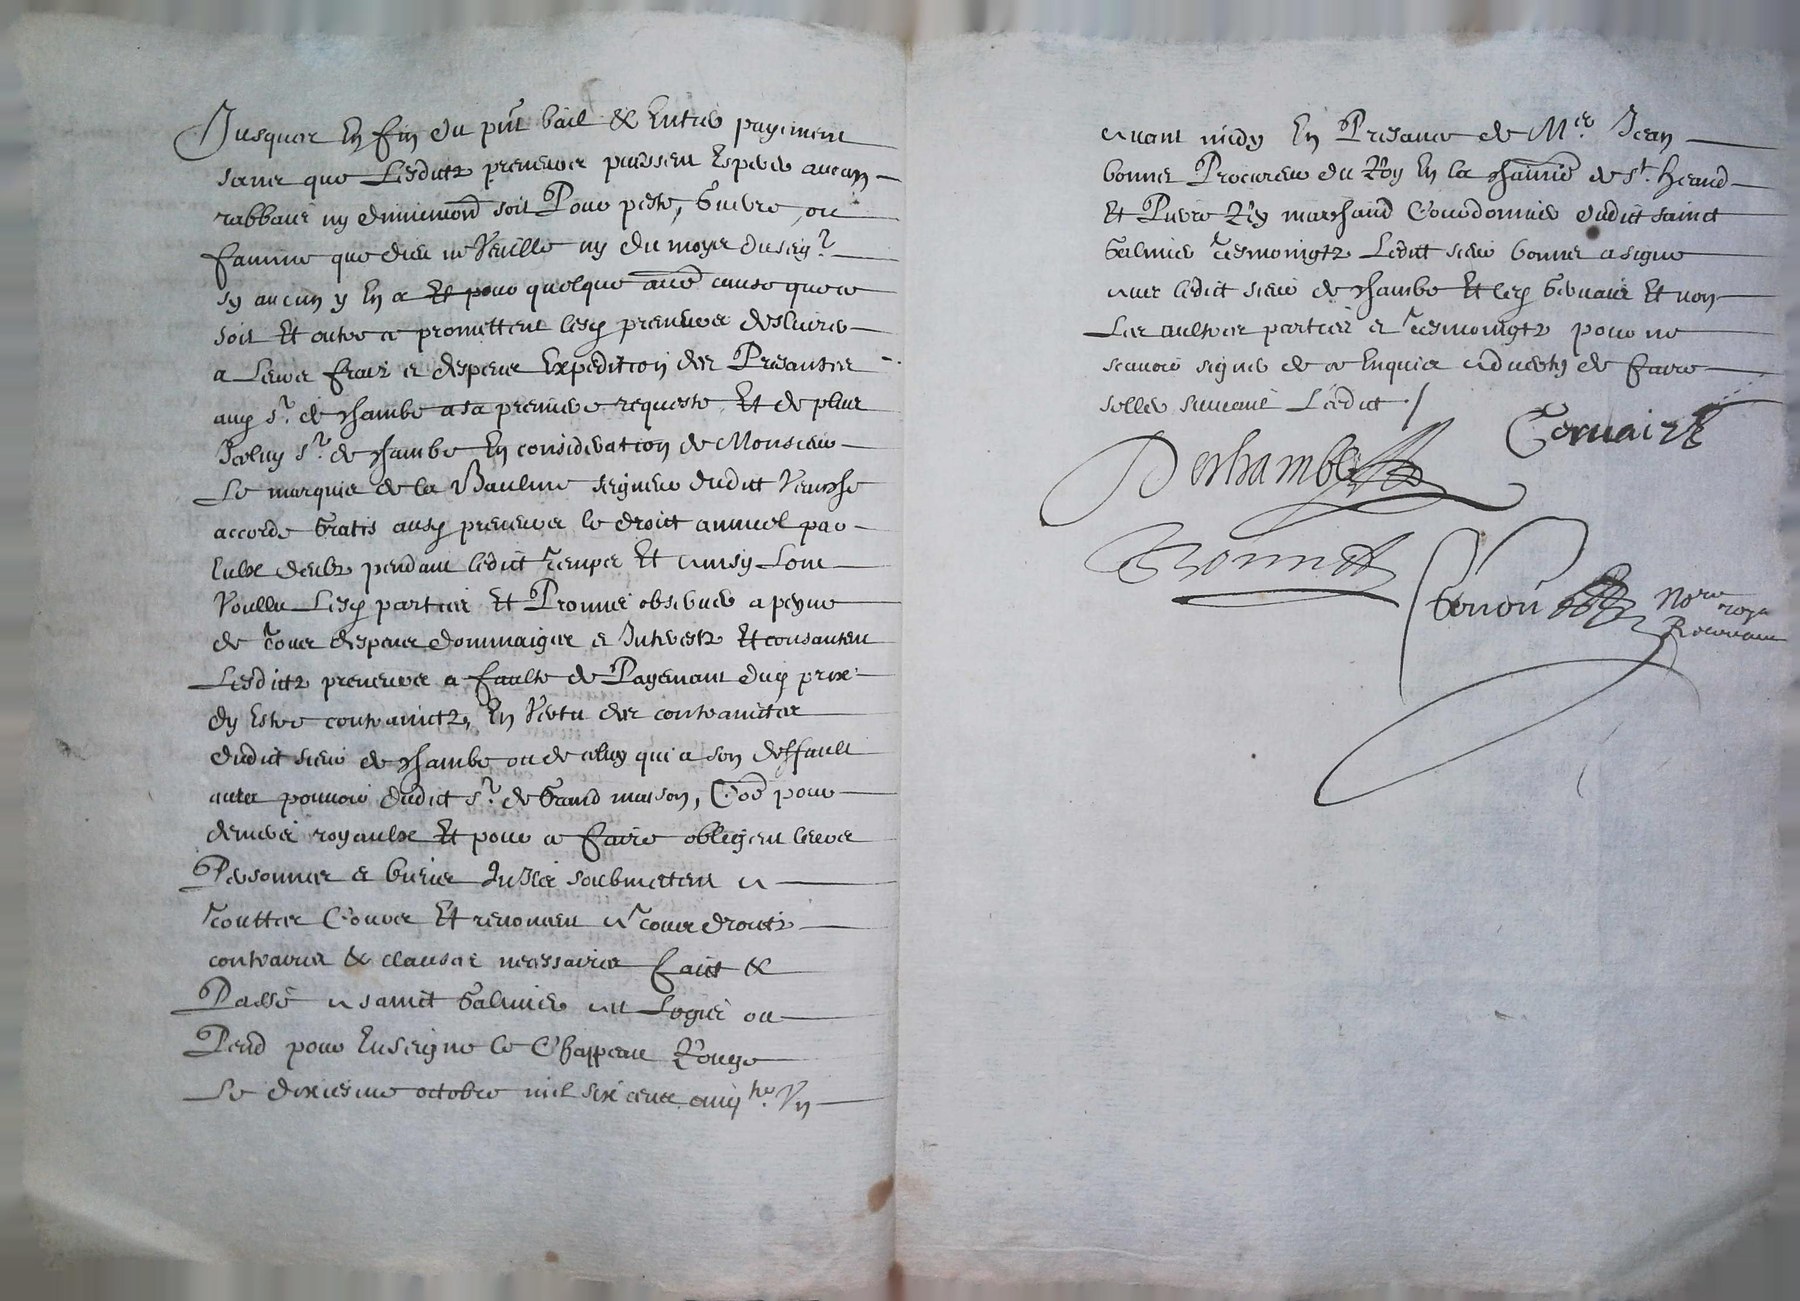 Jusques en fin du pnt bail & Entier payement
sans que Lesdictz preneurs puissent Esperer aucun
rabbais ny diminuond soit Pour peste, Guerre, ou
famine que dieu ne Veuille ny du moyer du seigr
sy aucun y En a Et pour quelque aue cause que ce
soit Et outre ce promettent lesd preneurs deslivrer
a Leurs frais et despens Expedition des Presantes
aud sr. de Chambe a sa premiere requeste Et de plus
Iceluy sr. de Chambe En consideration de Monsieur
Le marquis de la Baulme seigneur dudict Veauche
accorde Gratis ausd preneurs le droict annuel par
Eulx deubz pendant ledict temps Et ainsy L'ont
Voullu Lesd parties Et Promis observer a peyne
de tous despans dommaiges et Interestz Et consantent
Lesdictz preneurs a faulte de Payemant dud prix
dy Estre contrainctz, En Vertu des contrainctes
dudict sieur de Chambe ou de celuy qui a son deffault
aura pouvoir dudict sr. de Grand maison, Coe pour
deniers royaulx Et pour ce faire obligent leurs
Personnes et biens quilz soubmettent a
touttes Cours Et renoncent a tous droictz
contraires & clauses necessaires faict &
Passé a sainct Galmier au Logis ou
Pend pour Enseigne le Chappeau Rouge
Le dixiesme octobre mil six cens cinq
avant midy En Presance de Mes. Jean
bonnet Procureur du Roy En la Chanie de st. heand
Et Pierre Rey marchand Courdonnier dudict sainct
Galmier tesmoingtz Ledict sieur bonnet a signe
avec ledict sieur de Chambe Et led Gervais Et non
Les aultres parties et tesmoingtz pour ne
scavoir signer de ce Enquis advertis de faire
seller suivant L'edict
Gervais
Deschambe
Bonnet
Nore royal